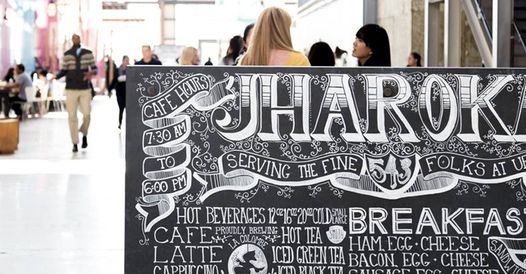 CAFE HOURS:
7:30 AM
TO
6:00 PM
JHAROK
SERVING THE FINE FOLKS AT
HOT BEVERAGES 12oz 16oz 20oz COLD
CAFE PROUDLY BREWING HOT TEA
LATTE LA COLOMBE ICED GREEN TEA
CAPPUCCINO ICED BLACK TEA
BREAKFAS
HAM, EGG & CHEESE
BACON, EGG & CHEESE
SAUSAGE EGG CHEESE